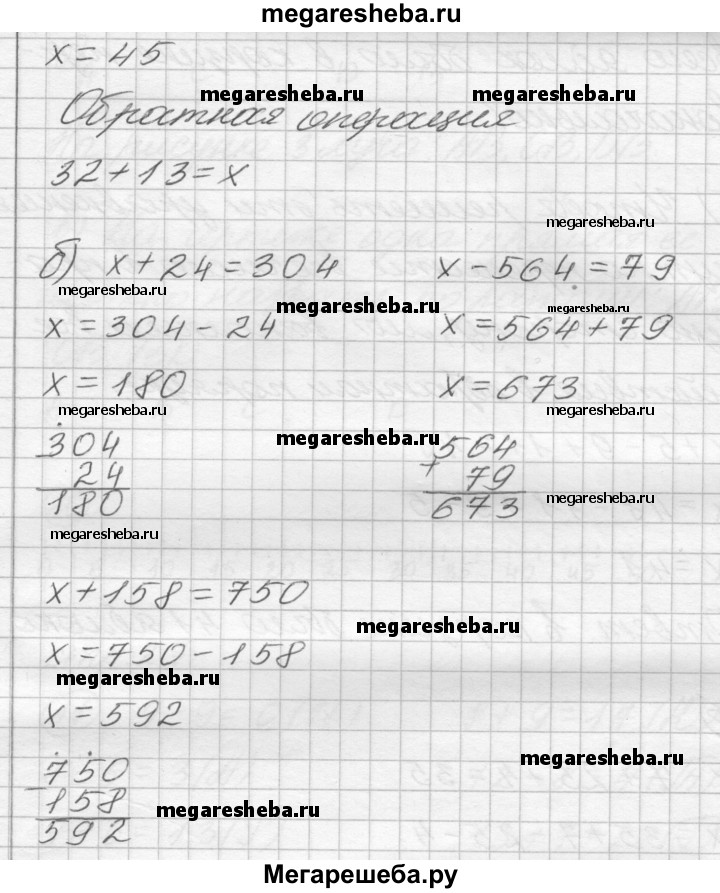 megaresheba.ru
x = 45
megaresheba.ru megaresheba.ru
Обратная операция
32 + 13 = x
megaresheba.ru
б) x + 24 = 304 x - 564 = 79
megaresheba.ru megaresheba.ru megaresheba.ru
x = 304 - 24 x = 564 + 79
x = 180 x = 673
megaresheba.ru megaresheba.ru megaresheba.ru
304 564
- 24 + 79
180 673
megaresheba.ru megaresheba.ru
x + 158 = 750
megaresheba.ru
x = 750 - 158
megaresheba.ru
x = 592
megaresheba.ru
750
- 158
megaresheba.ru
592
Мегарешеба.ру